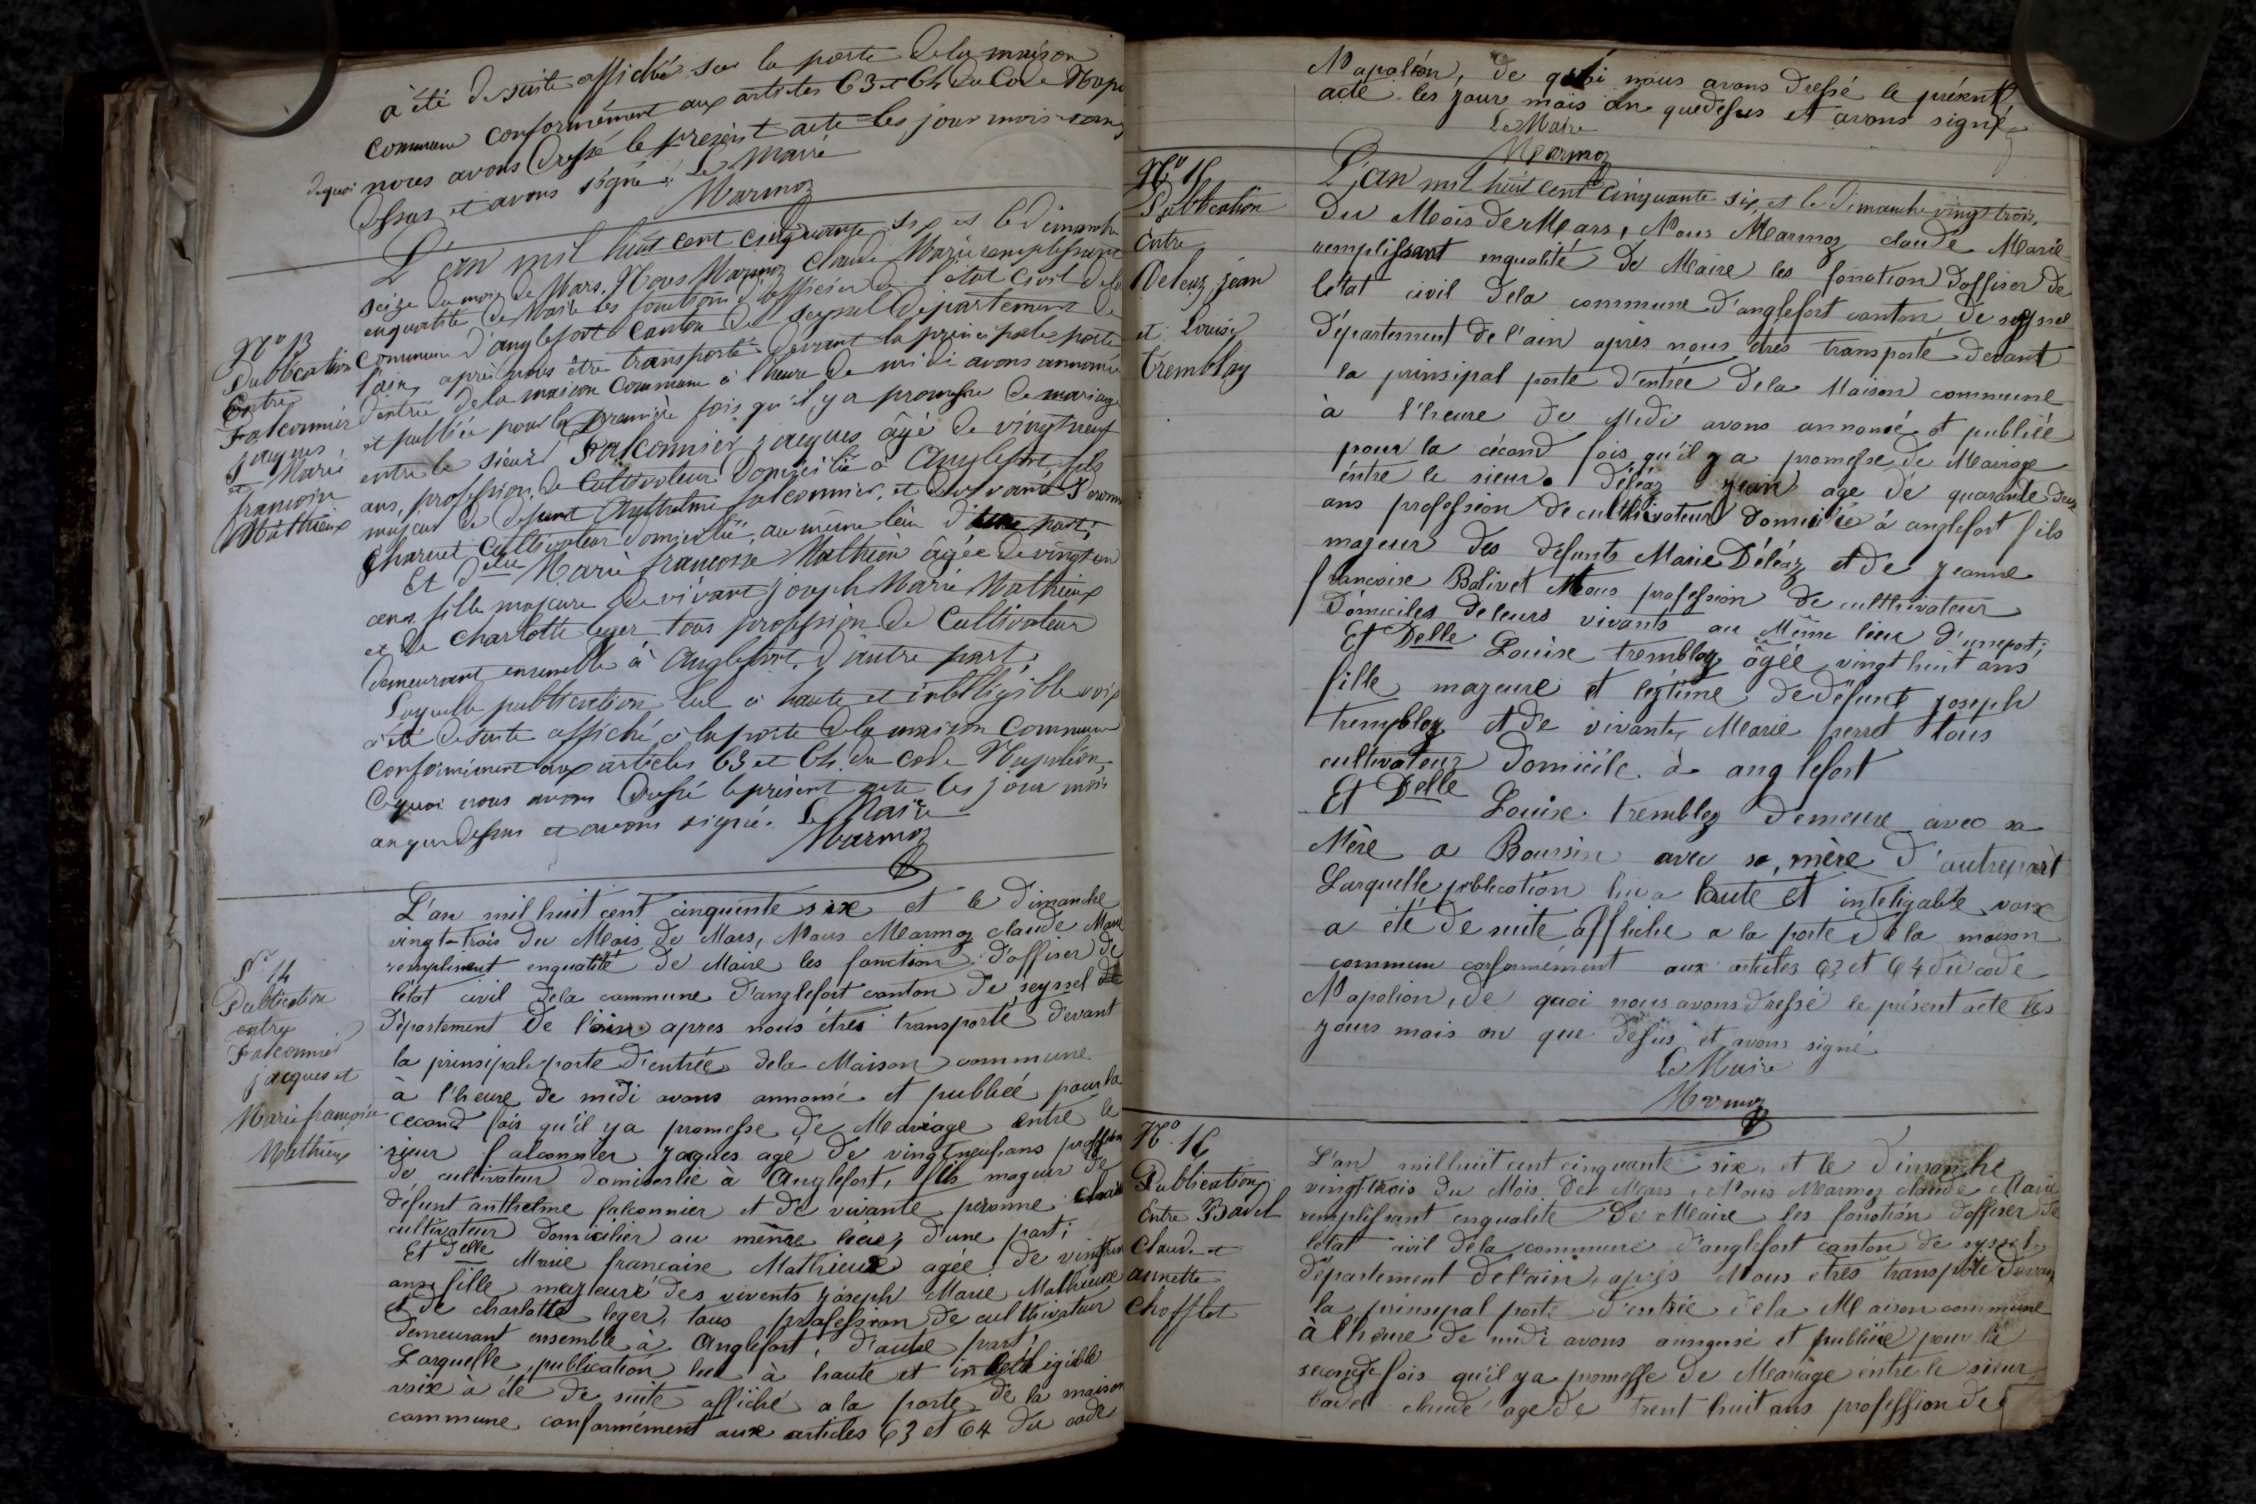 à été de suite affichée sur la porte de la maison
commune conformément aux articles 63 et 64 du Code Napo
de quoi nous avons dressé le présent acte les jour mois
dessus et avons signé. Le Maire
Marmoz
L'an mil huit cent cinquante six et le dimanche
seize du mois de Mars, Nous Marmoz Claude Marie remplissant
enqualité de Maire les fonctions d'officier de l'état civil de la
N° 13
Publication
Entre
Falconnier
jacques
et Marie
françoise
Mathieux
commune d'anglefort canton de seyssel département de
l'ain, après nous être transporté devant la principale porte
d'entrée de la maison commune à l'heure de midi avons annoncé
et publiée pour la première fois qu'il y a promesse de mariage
entre le sieur Falconnier jacques âgé de vingtneuf
ans, profession de Cultivateur domicilié à Anglefort, fils
majeur de défunt Anthelme falconnier, et de vivante
Charvet cultivateur domicilié, au même lieu d'une part;
Et delle Marie francoise Mathieu âgée de vingt un
ans fille majeure de vivant joseph Marie Mathieux
et de charlotte leger, tous profession de Cultivateur
demeurant ensemble à Anglefort, d'autre part,
Laquelle publication lue à haute et intelligible voix
a été de suite affiché à la porte de la maison Commune
conformément aux articles 63 et 64 du code Napoléon,
de quoi nous avons dressé le présent acte les jour mois
an que dessus et avons signé. Le Maire
Marmoz
N° 14
Publication
entre
Falconnier
jacques et
Marie françoise
Mathieux
L'an mil huit cent cinquante six et le dimanche
vingt-trois du Mois de Mars, Nous Marmoz claude Marie
remplissent enqualité de Maire les fonction d'offiser de
l'état civil dela commune d'anglefort canton de seyssel
département de l'ain apres nous êtres transporté devant
la prinsipale porte d'entrée dela Maison commune
à l'heure de midi avons annonsé et publieé pour la
cecond fois qu'il y a promesse de Mariage entre le
sieur falconnier jaques agé de vingtneuf ans proffession
de cultivateur domicerlié à Anglefort, fils mageur de
défunt anthelme falconnier et de vivante péronne
cultivateur domicilier au même lieux d'une part;
Et delle Marie francaise Mathieux agée de vingt un
ans fille mazeure des vivents joseph Marie Mathieux
et de charlotte leger, tous profession de culthivateur
demeurant ensemble à Anglefort, d'autre part,
Larquelle publication lue à haute et inteligible
voix à été de suite affiché a la porte de la maison
commune conformément aux articles 63 et 64 du code
Napoléon, de quoi nous avons dressé le présent
acte les jour mois an quedesus et avons signé
Le Maire
Marmoz
N° 15
Publication
Entre
Deleaz jean
et Louise
tremblay
L'an mil huit cent cinquante six et le dimanche vingt trois
du Mois de Mars, Nous Marmoz claude Marie
remplissant enqualité de Maire les fonction d'offiser de
létat civil dela commune d'anglefort canton de seyssel
département de l'ain après nous êtres transporté devant
la prinsipal porte d'entrée dela Maison commune
à l'heure de Midi avons annonsé et publiée
pour la cécond fois qu'il y a promesse de Mariage
éntre le sieur Déléaz jean age de quarante deux
ans profession de culthivateur domicilié à anglefort fils
majeur des défunts Marie Déléaz et de jeanne
francoise Bolivet tous profession de culthivateur
Domiciles de leurs vivants au Même lieu d'une part;
Et Delle Louise tremblay âgée vingt huit ans
fille mazeure et legitime de défunt joseph
tremblay et de vivante Marie perret tous
cultivateur domicile à anglefort
Et Delle Louise trembley demeure avec sa
Mère a Boursin avec sa mère d'autre part
Larquelle publication lue a haute et inteligable voix
a été de suite affiche a la porte de la maison
commun conformément aux articles 63 et 64 du code
Napolion, de quoi nous avons dressé le présent acte les
jours mois an que desus et avons signé
Le Maire
Marmoz
N° 16
Publication
Entre Badel
Claude et
annette
Chofflet
L'an mil huit cent cinquante six et le Dimanche
vingt trois du Mois de Mars, Nous Marmoz claude Marie
remplissant enqualité de Maire les fonction d'offiser de
létat civil dela commune d'anglefort canton de syssel
département de l'ain, après Nous etres transporté devant
la prinsipal porte d'entrée dela Maison commune
à l'heure de midi avons annonsé et publiée pour la
seconde fois qu'il y a promesse de Mariage entre le sieur
badel claude age de trent huit ans profession de